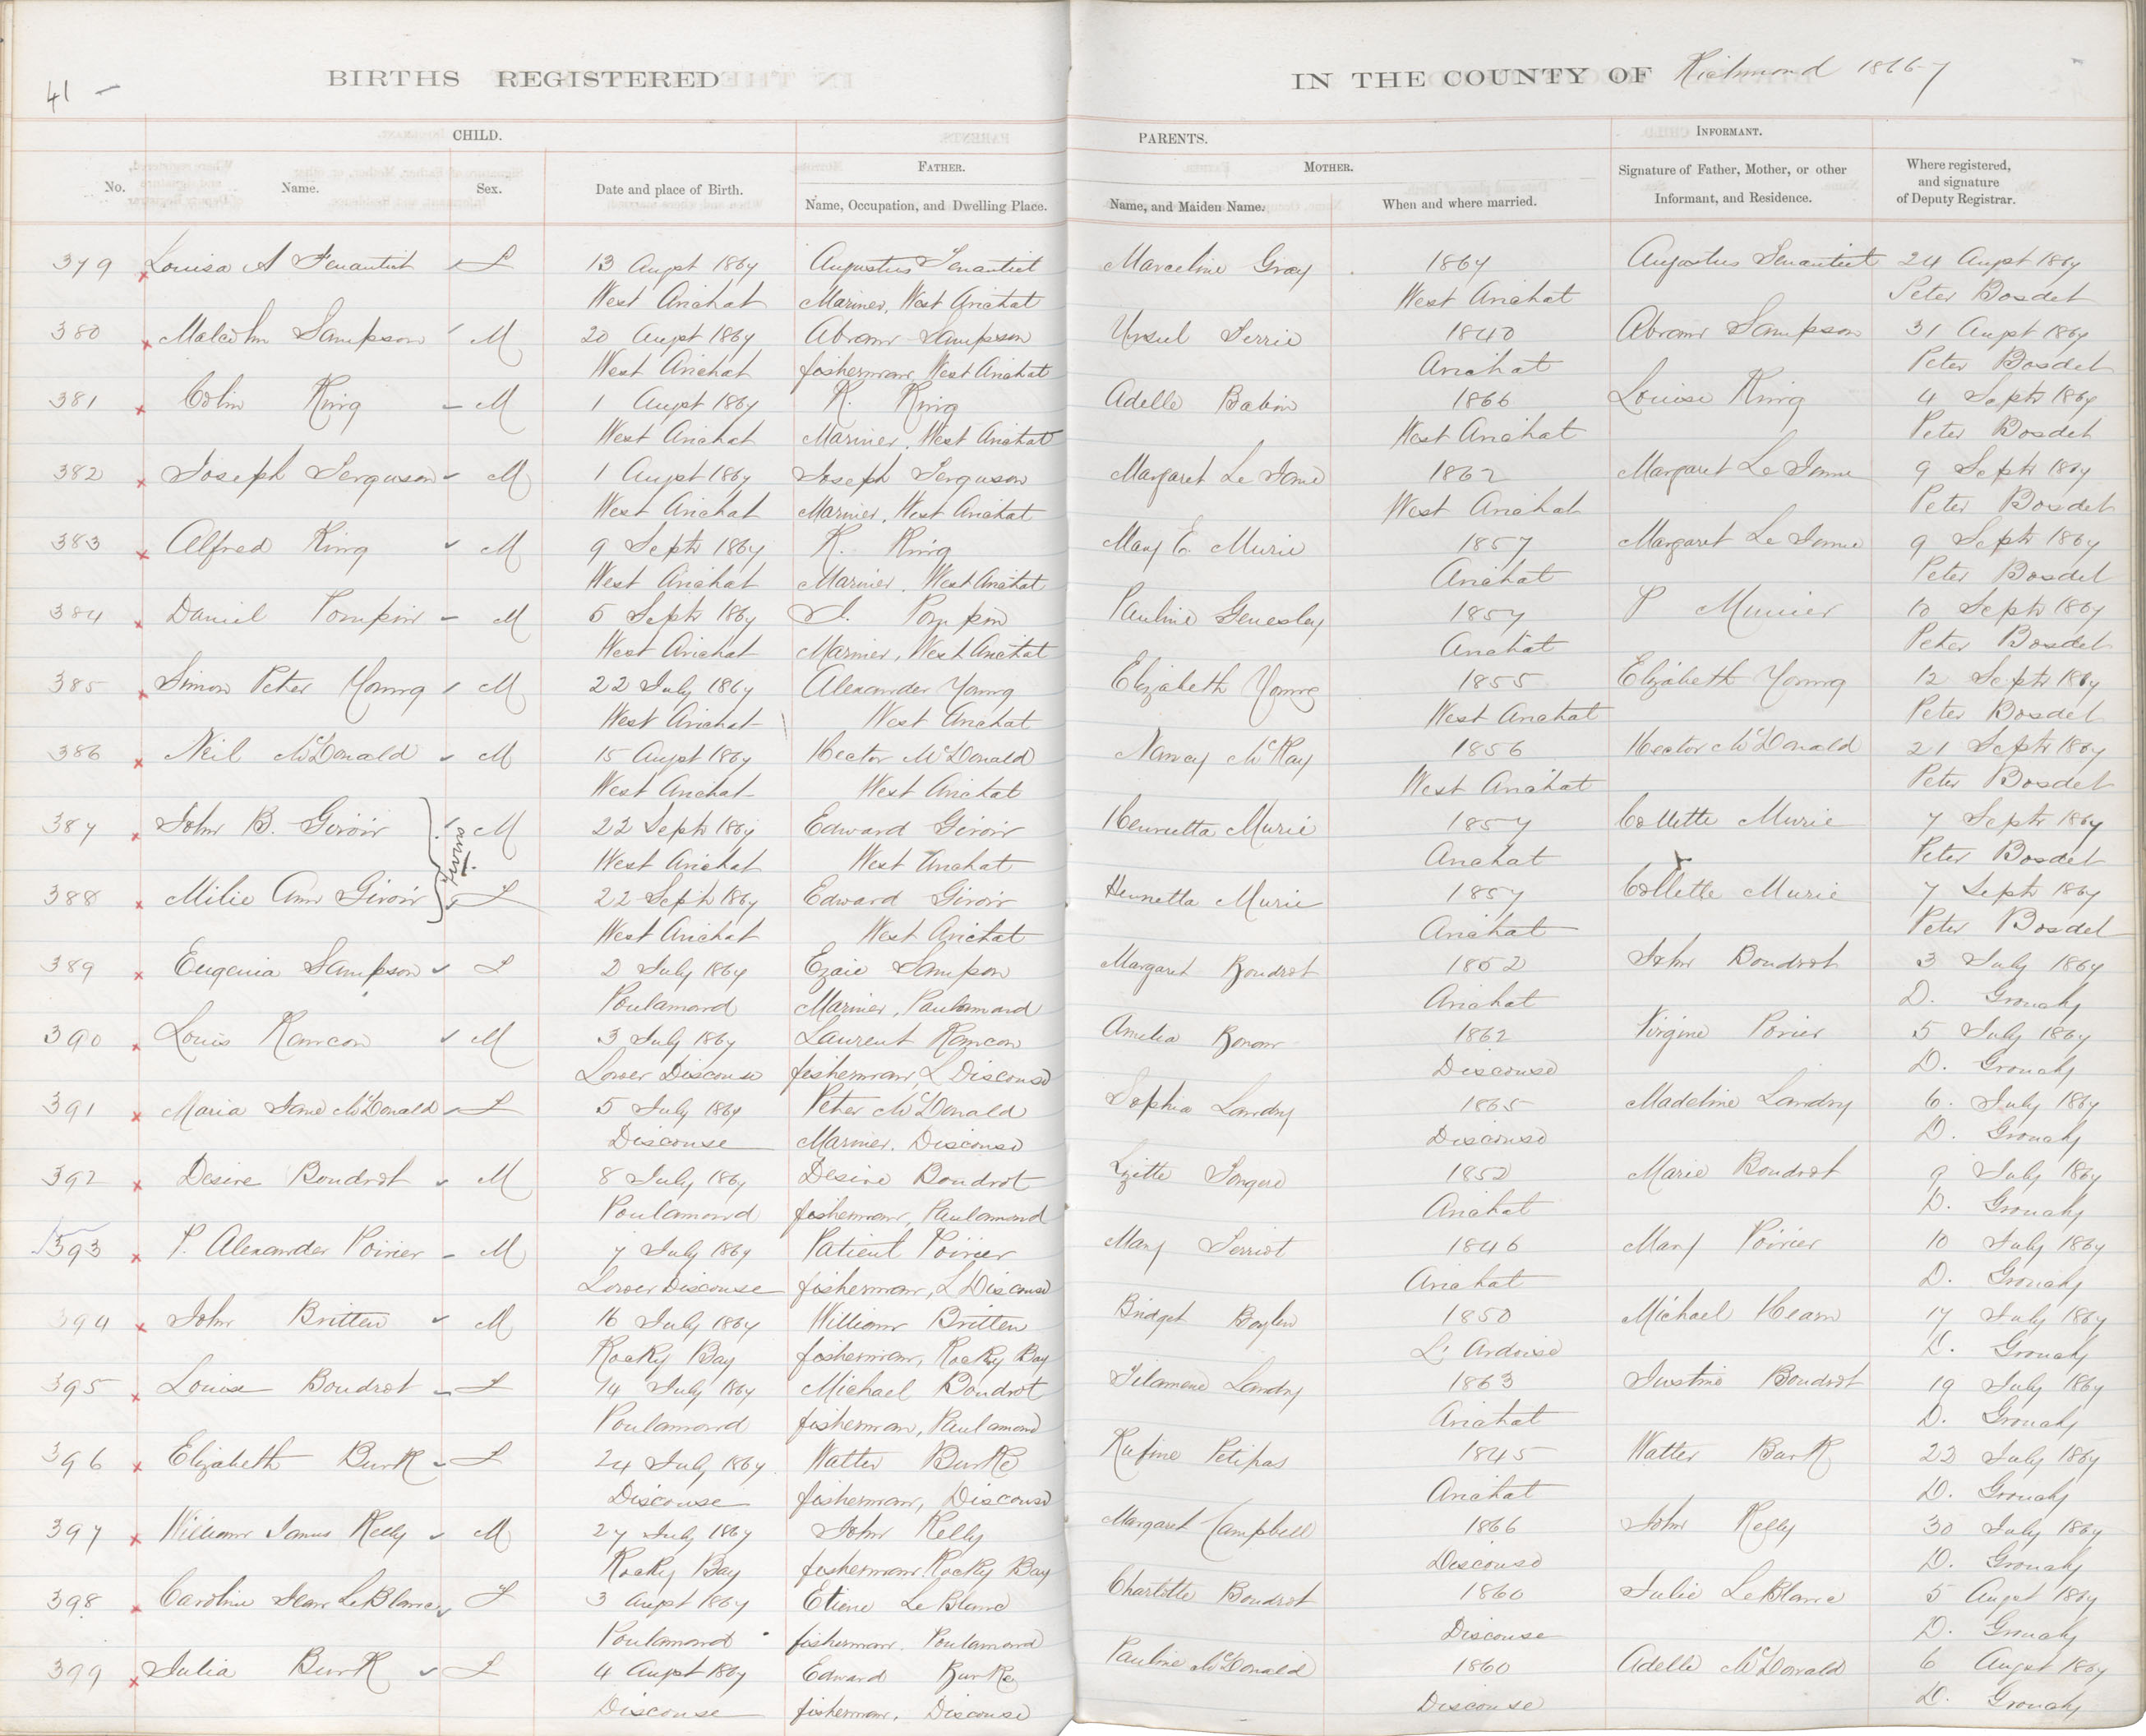 41 -
BIRTHS REGISTERED IN THE COUNTY OF Richmond 1866-7
CHILD. PARENTS. INFORMANT.
FATHER. MOTHER.
No. Name. Sex. Date and place of Birth. Name, Occupation, and Dwelling Place. Name, and Maiden Name. When and where married. Signature of Father, Mother, or other Informant, and Residence. Where registered, and signature of Deputy Registrar.
379 Louisa A 13 Augst 1867 Augustus Marceline Gray 1867 Augustus 24 Augst 1867
West Arichat Mariner, West Arichat West Arichat Peter Bosdet
380 Malcolm Sampson M 20 Augst 1867 Abram Sampson Ursul 1840 Abram Sampson 31 Augst 1867
West Arichat fisherman, West Arichat Arichat Peter Bosdet
381 Colin King M 1 Augst 1867 R. King Adelle Babin 1866 Louise King 4 Septr 1867
West Arichat Mariner. West Arichat West Arichat Peter Bosdet
382 Joseph Ferguson M 1 Augst 1867 Joseph Ferguson Margaret Le 1862 Margaret Le 9 Septr 1867
West Arichat Mariner. West Arichat West Arichat Peter Bosdet
383 Alfred King M 9 Septr 1867 R. King Mary E. Murie 1857 Margaret Le 9 Septr 1867
West Arichat Mariner. West Arichat Arichat Peter Bosdet
384 Daniel M 5 Septr 1867 Pauline 1857 P 10 Septr 1867
West Arichat Mariner, West Arichat Arichat Peter Bosdet
385 Simon Peter Young M 22 July 1867 Alexander Young Elizabeth Young 1855 Elizabeth Young 12 Septr 1867
West Arichat West Arichat West Arichat Peter Bosdet
386 Neil McDonald M 15 Augst 1867 Hector McDonald Nancy McKay 1856 Hector McDonald 21 Septr 1867
West Arichat West Arichat West Arichat Peter Bosdet
387 John B. Giroir twins M 22 Septr 1867 Edward Giroir Henrietta Murie 1857 Collette Murie 7 Septr 1867
West Arichat West Arichat Arichat Peter Bosdet
388 Milie Ann Giroir F 22 Septr 1867 Edward Giroir Henrietta Murie 1857 Collette Murie 7 Septr 1867
West Arichat West Arichat Arichat Peter Bosdet
389 Eugenia Sampson F 2 July 1867 Ezaie Sampson Margaret Boudrot 1852 John Boudrot 3 July 1867
Poulamond Mariner, Paulamond Arichat D. Grouchy
390 Louis Rancon M 3 July 1867 Laurent Rancon Amelia 1862 Virgine Poirier 5 July 1867
Lower Discouse fisherman, L Discouse Discouse D. Grouchy
391 Maria Jane McDonald F 5 July 1867 Peter McDonald Sophia Landry 1865 Madeline Landry 6. July 1867
Discouse Mariner. Discouse Discouse D. Grouchy
392 Desire Boudrot M 8 July 1867 Desire Boudrot 1852 Marie Boudrot 9 July 1867
Poulamond fisherman, Paulamond Arichat D. Grouchy
393 P. Alexander Poirier M 7 July 1867 Patient Poirier Mary 1846 Mary Poirier 10 July 1867
Lower Discouse fisherman, L Discouse Arichat D. Grouchy
394 John Britten M 16 July 1867 William Britten Bridget 1850 Michael Hearn 17 July 1867
Rocky Bay fisherman, Rocky Bay L'Ardoise D. Grouchy
395 Louise Boudrot F 14 July 1867 Michael Boudrot Filamene Landry 1863 Justine Boudrot 19 July 1867
Poulamond fisherman, Paulamond Arichat D. Grouchy
396 Elizabeth Burk F 24 July 1867 Watter Burke Rufine Petipas 1845 Watter Burk 23 July 1867
Discouse fisherman, Discouse Arichat D. Grouchy
397 William James Kelly M 27 July 1867 John Kelly Margaret Campbell 1866 John Kelly 30 July 1867
Rocky Bay fisherman, Rocky Bay Discouse D. Grouchy
398 Caroline Jean LeBlanc F 3 Augst 1867 Etiene LeBlanc Charlotte Boudrot 1860 Julie LeBlanc 5 Augst 1867
Poulamond fisherman. Poulamond Discouse D. Grouchy
399 Julia Burk F 4 Augst 1867 Edward Burke Pauline McDonald 1860 Adelle McDonald 6 Augst 1867
Discouse fisherman, Discouse Discouse D. Grouchy